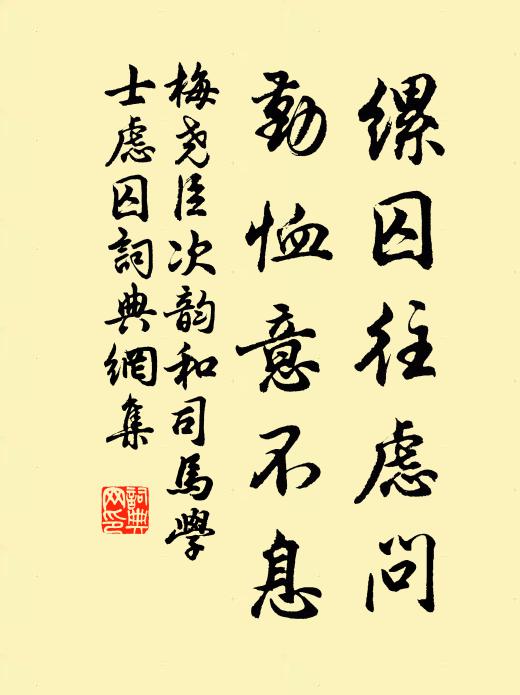 縲囚往慮問
勤恤意不息
梅尧臣次韵和司馬學
士慮囚詞典網集
詞典
网印